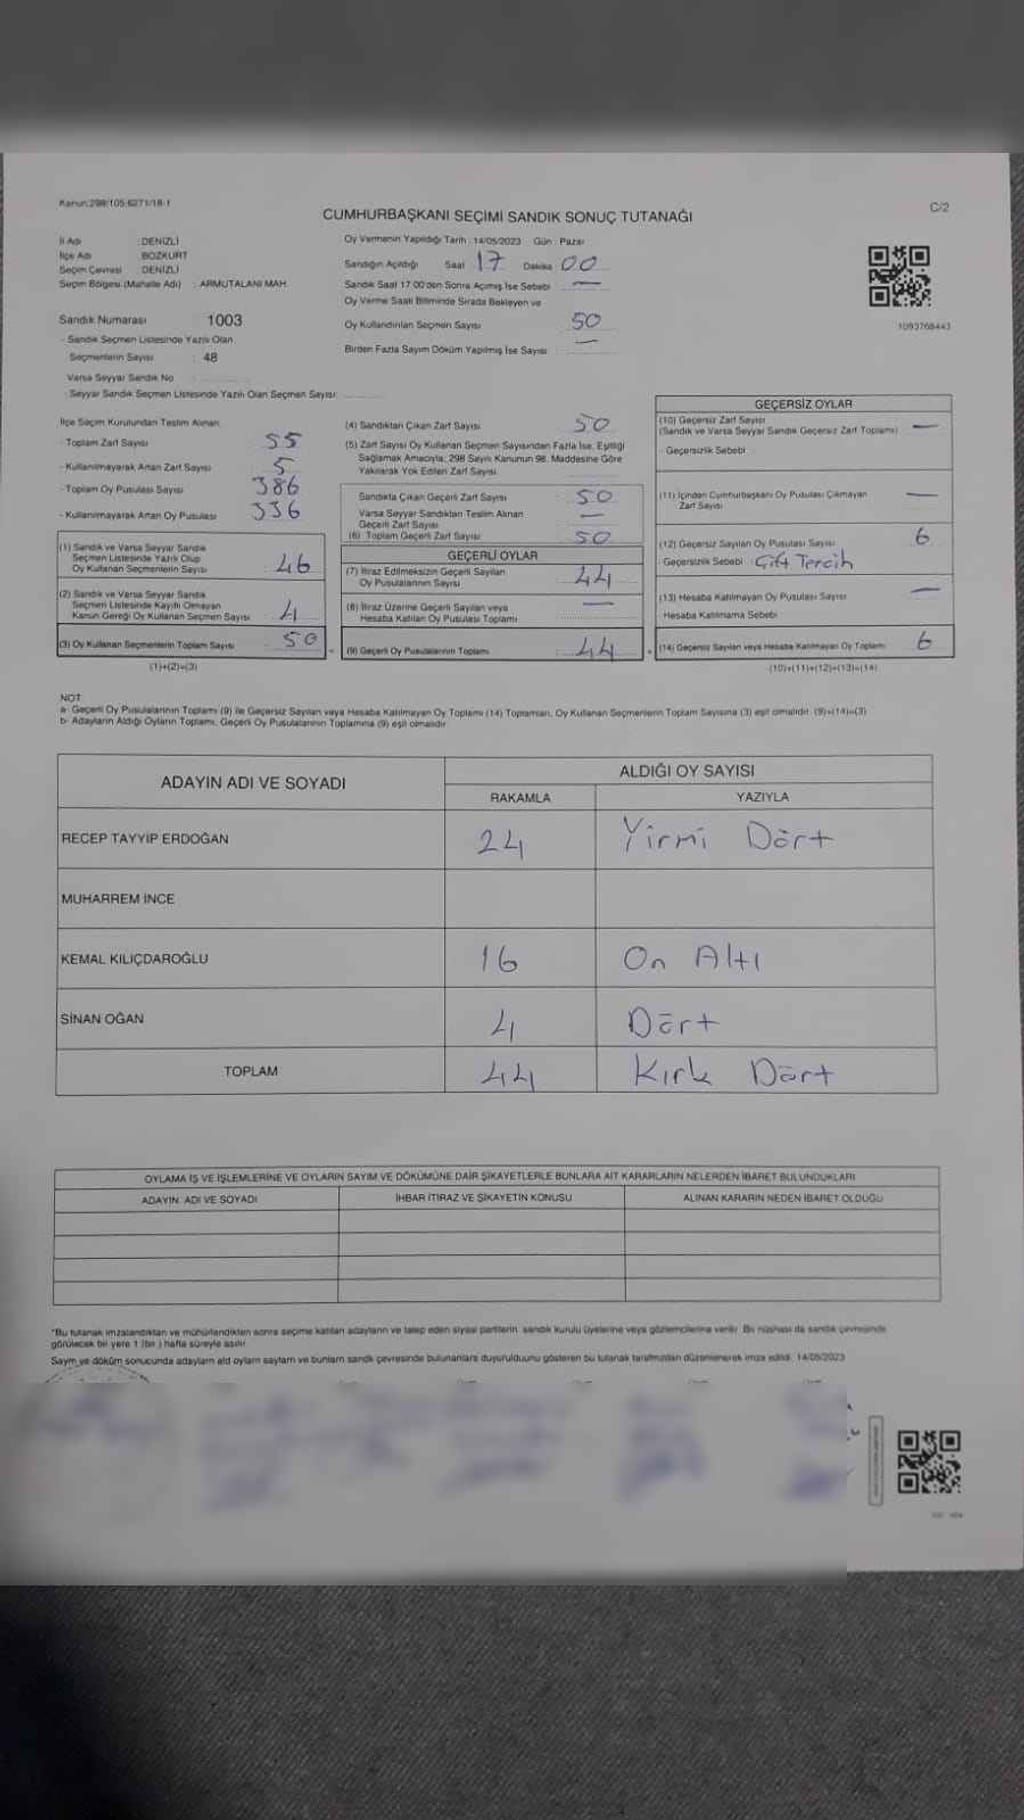 Kanun:298/105-6271/18-1
C/2
CUMHURBAŞKANI SEÇİMİ SANDIK SONUÇ TUTANAĞI
İl Adı : DENİZLİ
İlçe Adı : BOZKURT
Seçim Çevresi : DENİZLİ
Seçim Bölgesi (Mahalle Adı) : ARMUTALANI MAH.
Sandık Numarası 1003
- Sandık Seçmen Listesinde Yazılı Olan
Seçmenlerin Sayısı : 48
Varsa Seyyar Sandık No
- Seyyar Sandık Seçmen Listesinde Yazılı Olan Seçmen Sayısı
Oy Vermenin Yapıldığı Tarih : 14/05/2023 Gün : Pazar
Sandığın Açıldığı Saat 17 Dakika 00
Sandık Saat 17:00'den Sonra Açılmış İse Sebebi —
Oy Verme Saati Bitiminde Sırada Bekleyen ve
Oy Kullandırılan Seçmen Sayısı 50
Birden Fazla Sayım Döküm Yapılmış İse Sayısı —
1093768443
İlçe Seçim Kurulundan Teslim Alınan:
- Toplam Zarf Sayısı 55
- Kullanılmayarak Artan Zarf Sayısı 5
- Toplam Oy Pusulası Sayısı 386
- Kullanılmayarak Artan Oy Pusulası 336
(1) Sandık ve Varsa Seyyar Sandık
Seçmen Listesinde Yazılı Olup
Oy Kullanan Seçmenlerin Sayısı 46
(2) Sandık ve Varsa Seyyar Sandık
Seçmen Listesinde Kayıtlı Olmayan
Kanun Gereği Oy Kullanan Seçmen Sayısı 4
(3) Oy Kullanan Seçmenlerin Toplam Sayısı 50
(1)+(2)=(3)
(4) Sandıktan Çıkan Zarf Sayısı 50
(5) Zarf Sayısı Oy Kullanan Seçmen Sayısından Fazla İse, Eşitliği
Sağlamak Amacıyla, 298 Sayılı Kanunun 98. Maddesine Göre
Yakılarak Yok Edilen Zarf Sayısı
Sandıkta Çıkan Geçerli Zarf Sayısı 50
Varsa Seyyar Sandıktan Teslim Alınan
Geçerli Zarf Sayısı —
(6) Toplam Geçerli Zarf Sayısı 50
GEÇERLİ OYLAR
(7) İtiraz Edilmeksizin Geçerli Sayılan
Oy Pusulalarının Sayısı 44
(8) İtiraz Üzerine Geçerli Sayılan veya
Hesaba Katılan Oy Pusulası Toplamı —
(9) Geçerli Oy Pusulalarının Toplamı 44
GEÇERSİZ OYLAR
(10) Geçersiz Zarf Sayısı
(Sandık ve Varsa Seyyar Sandık Geçersiz Zarf Toplamı) —
Geçersizlik Sebebi
(11) İçinden Cumhurbaşkanı Oy Pusulası Çıkmayan
Zarf Sayısı —
(12) Geçersiz Sayılan Oy Pusulası Sayısı 6
Geçersizlik Sebebi : Çift Tercih
(13) Hesaba Katılmayan Oy Pusulası Sayısı —
Hesaba Katılmama Sebebi
(14) Geçersiz Sayılan veya Hesaba Katılmayan Oy Toplamı 6
(10)+(11)+(12)+(13)=(14)
NOT
a- Geçerli Oy Pusulalarının Toplamı (9) ile Geçersiz Sayılan veya Hesaba Katılmayan Oy Toplamı (14) Toplamları, Oy Kullanan Seçmenlerin Toplam Sayısına (3) eşit olmalıdır. (9)+(14)=(3)
b- Adayların Aldığı Oyların Toplamı, Geçerli Oy Pusulalarının Toplamına (9) eşit olmalıdır
ADAYIN ADI VE SOYADI
ALDIĞI OY SAYISI
RAKAMLA YAZIYLA
RECEP TAYYİP ERDOĞAN 24 Yirmi Dört
MUHARREM İNCE
KEMAL KILIÇDAROĞLU 16 On Altı
SİNAN OĞAN 4 Dört
TOPLAM 44 Kırk Dört
OYLAMA İŞ VE İŞLEMLERİNE VE OYLARIN SAYIM VE DÖKÜMÜNE DAİR ŞİKAYETLERLE BUNLARA AİT KARARLARIN NELERDEN İBARET BULUNDUKLARI
ADAYIN ADI VE SOYADI İHBAR İTİRAZ VE ŞİKAYETİN KONUSU ALINAN KARARIN NEDEN İBARET OLDUĞU
*Bu tutanak imzalandıktan ve mühürlendikten sonra seçime katılan adayların ve talep eden siyasi partilerin sandık kurulu üyelerine veya gözlemcilerine verilir. Bir nüshası da sandık çevresinde
görülecek bir yere 1 (bir ) hafta süreyle asılır
Sayım ve döküm sonucunda adayların ald oyların sayıların ve bunların sandık çevresinde bulunanlara duyurulduunu gösteren bu tutanak tarafımızdan düzenlenerek imza edildi. 14/05/2023